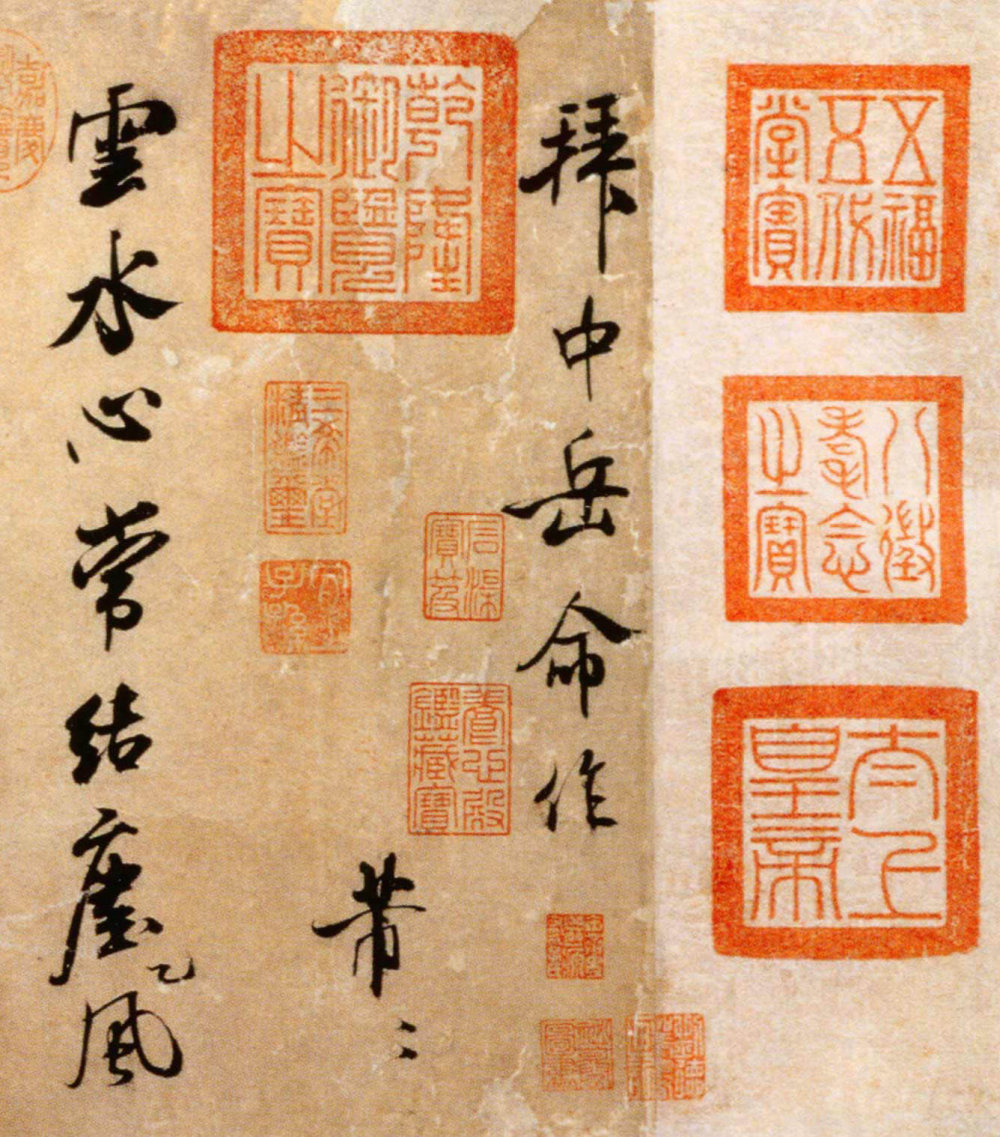 五福五代堂寶
八徵耄念之寶
太上皇帝
拜中岳命作
乾隆御覽之寶
石渠寶笈
養心殿鑑藏寶
三希堂精鑑璽
宜子孫
芾〻
雲水心常結塵乙風
嘉慶御覽之寶